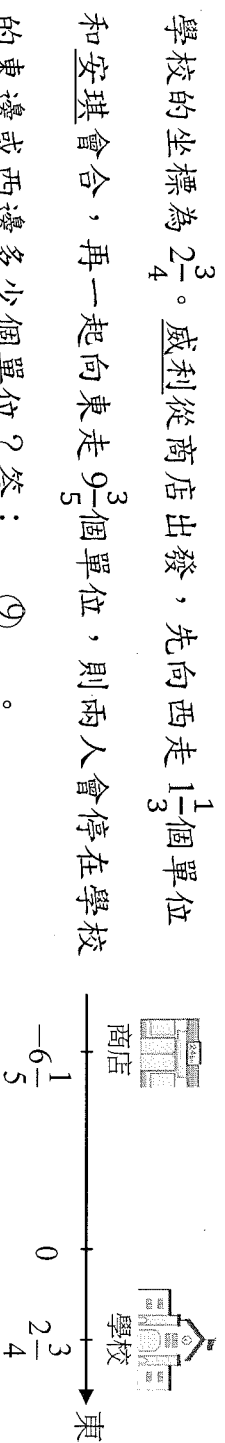 學校的坐標為 2 3/4。威利從商店出發，先向西走 1 1/3 個單位
和安琪會合，再一起向東走 9 3/5 個單位，則兩人會停在學校
的東邊或西邊多少個單位？答：　⑨　。
24h
商店
學校
東
-6 1/5
0
2 3/4